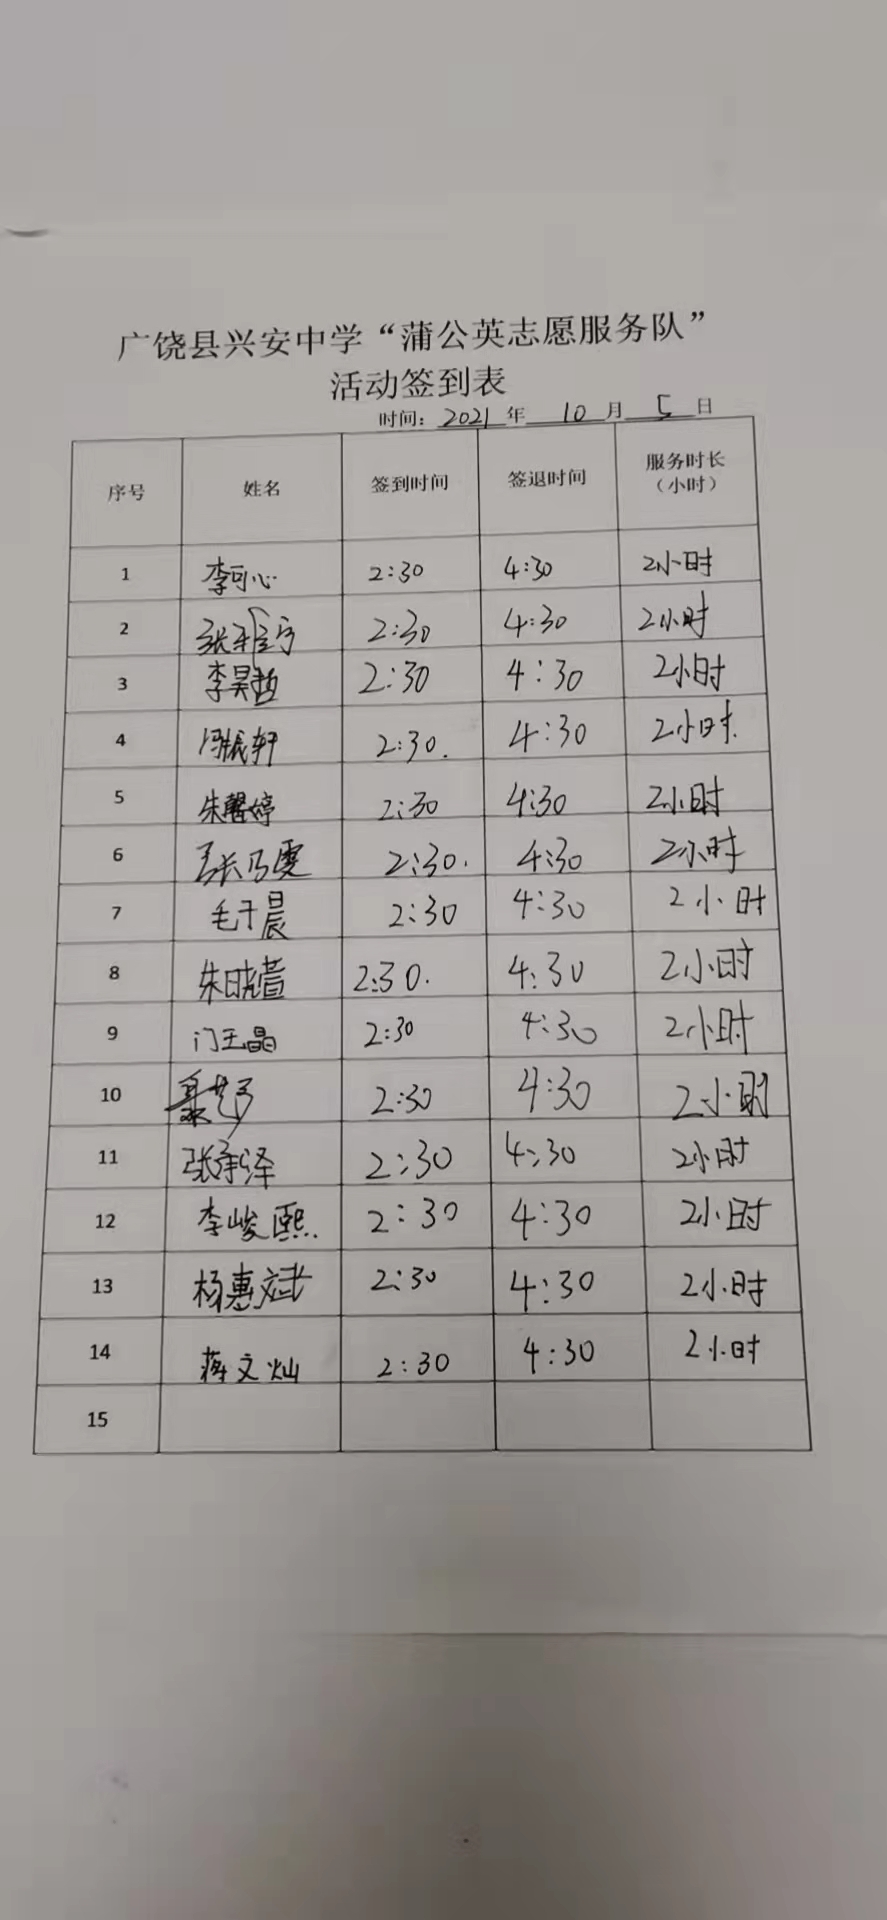 广饶县兴安中学“蒲公英志愿服务队”
活动签到表
时间：2021年10月5日
序号 姓名 签到时间 签退时间 服务时长（小时）
1 李可心 2:30 4:30 2小时
2 2:30 4:30 2小时
3 李昊哲 2:30 4:30 2小时
4 冯振轩 2:30. 4:30 2小时.
5 朱馨婷 2:30 4:30 2小时
6 张乃雯 2:30. 4:30 2小时
7 毛子晨 2:30 4:30 2小时
8 朱晓萱 2:30. 4:30 2小时
9 门玉晶 2:30 4:30 2小时
10 2:30 4:30 2小时
11 张承泽 2:30 4:30 2小时
12 李峻熙. 2:30 4:30 2小时
13 杨惠斌 2:30 4:30 2小时
14 蒋文灿 2:30 4:30 2小时
15